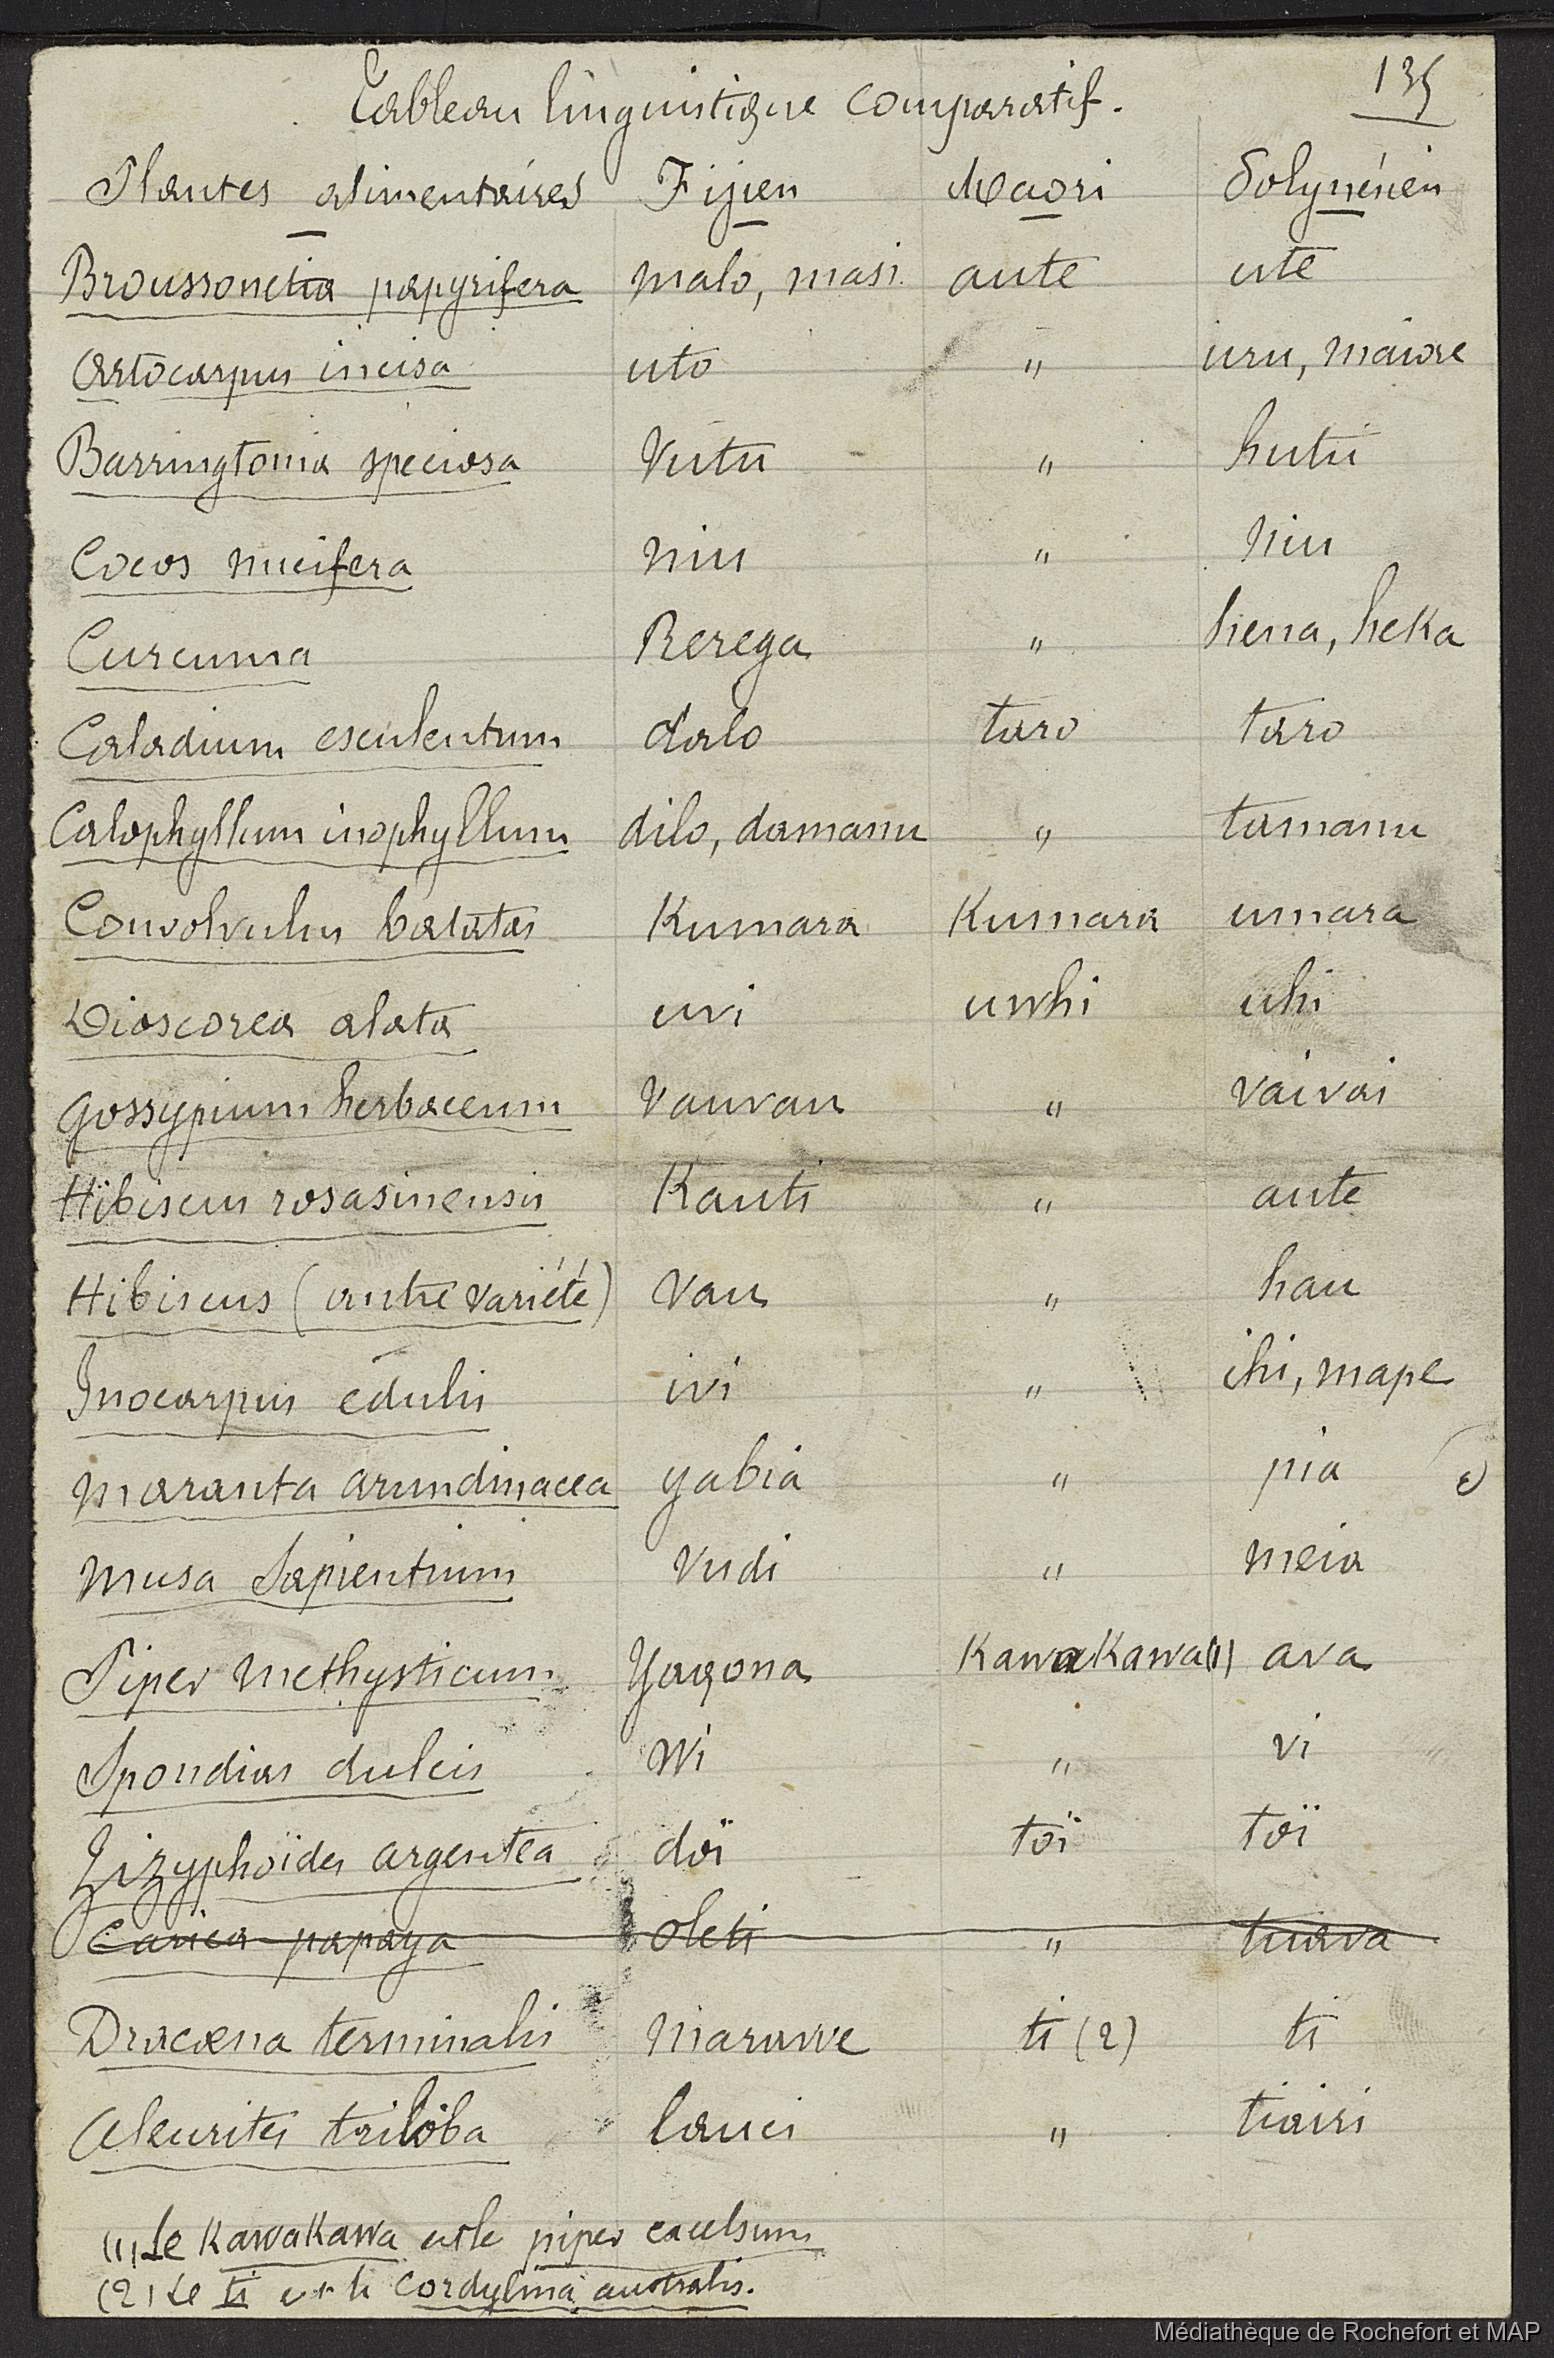 135
Tableau linguistique comparatif.
Plantes alimentaires Fijien Maori Polynésien
Broussonetia papyrifera malo, masi aute ute
Artocarpus incisa uto " uru, maiore
Barringtonia speciosa Vutu " hutu
Cocos nucifera niu " niu
Curcuma Rerega " hena, heka
Caladium esculentum dalo taro taro
Calophyllum inophyllum dilo, damanu " tamanu
Convolvulus batatas Kumara Kumara umara
Dioscorea alata uvi uwhi uhi
Gossypium herbaceum Vauvau " vaivai
Hibiscus rosasinensis Kauti " aute
Hibiscus (autre variété) Vau " hau
Inocarpus edulis ivi " ihi, mape
Maranta arundinacea yabia " pia
Musa Sapientium Vudi " meia
Piper methysticum Yaqona KawaKawa(1) ava
Spondias dulcis Wi " vi
Zizyphoïdes argentea doï toï toï
Carica papaya oleti " tuava
Dracœna terminalis Maruwe ti (2) ti
Aleurites triloba lauci " tiairi
(1) Le KawaKawa est le piper excelsum
(2) Le ti est le Cordylina australis.
Médiathèque de Rochefort et MAP